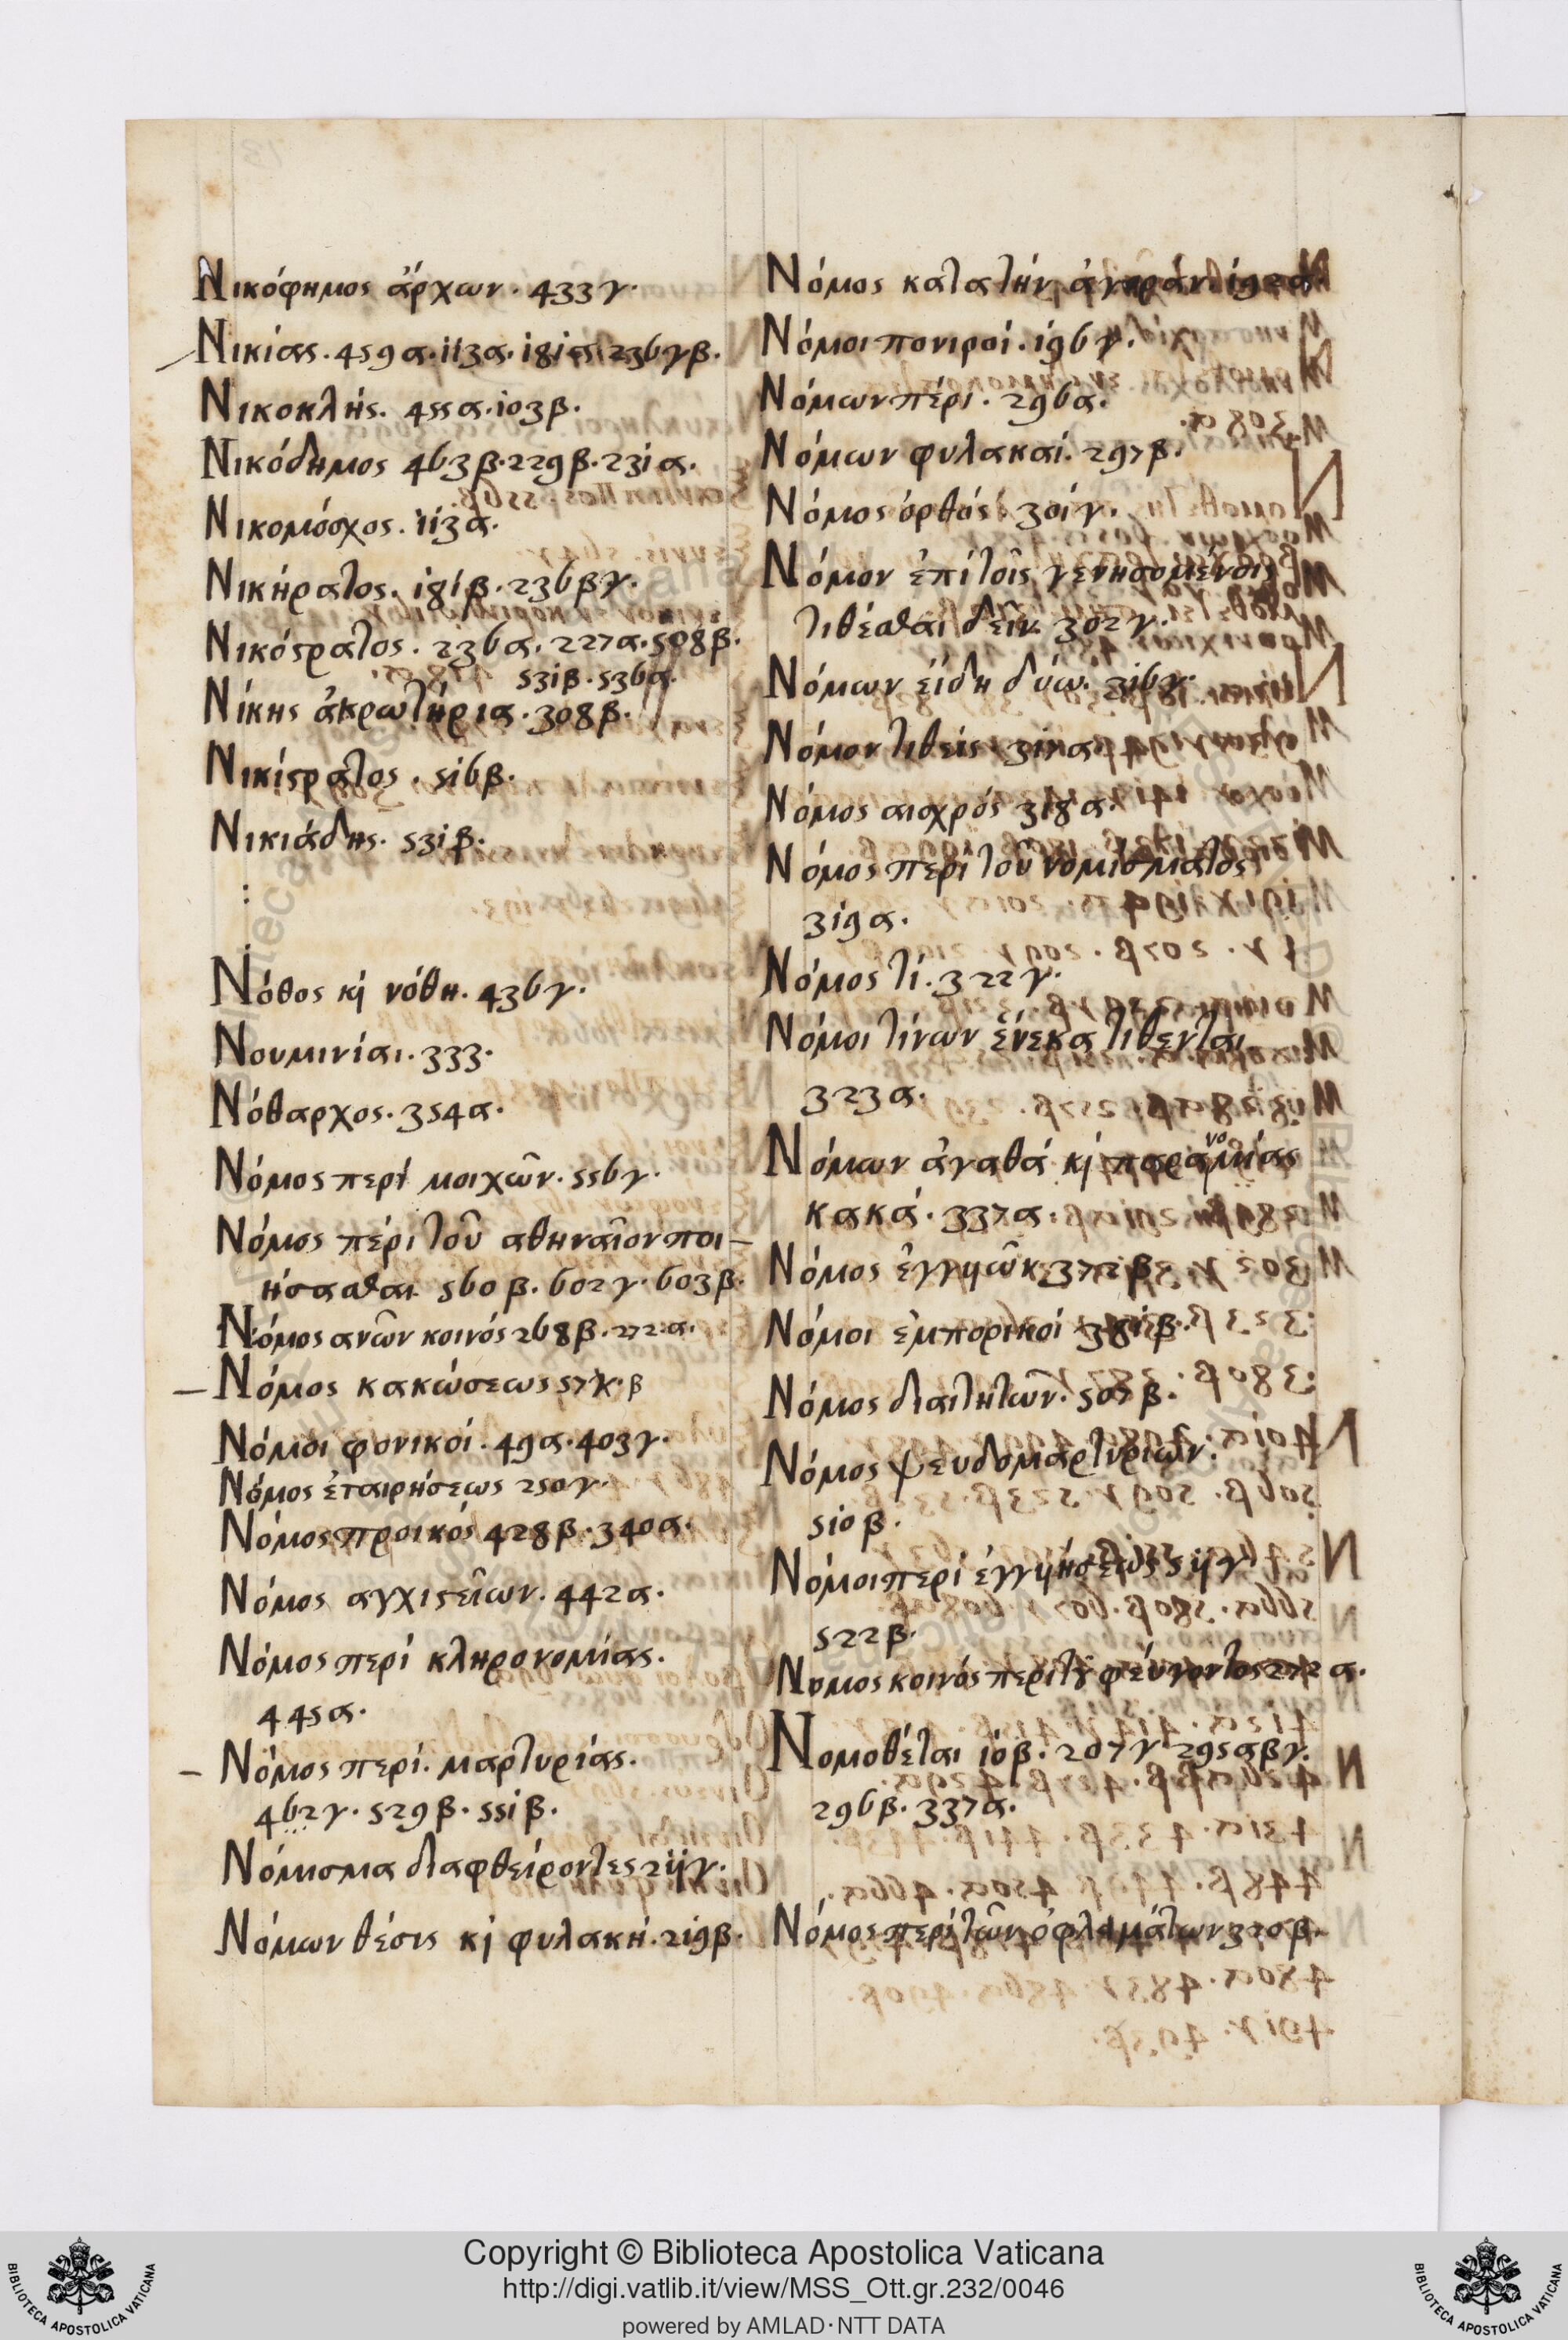 Νικόφημος ἄρχων. 433 γ.
Νικίας. 459 α. 113 α. 181 α. 236 γ β.
Νικοκλής. 455 α. 103 β.
Νικόδημος 463 β. 229 β. 231 α.
Νικομόσχος. 113 α.
Νικήρατος. 181 β. 236 β γ.
Νικόστρατος. 236 α. 227 α. 508 β.
531 β. 536 α.
Νίκης ἀκρωτήρια. 308 β.
Νικίστρατος. 516 β.
Νικιάδης. 531 β.
Νόθος κὶ νόθη. 436 γ.
Νουμινίαι. 333.
Νόθαρχος. 354 α.
Νόμος περὶ μοιχῶν. 556 γ.
Νόμος περὶ τοῦ αθηναῖον ποι-
ήσασθαι 560 β. 602 γ. 603 β.
Νόμος ανων κοινός 268 β. 272 α.
Νόμος κακώσεως 57 β
Νόμοι φονικοί. 49 α. 403 γ.
Νόμος ἑταιρήσεως 250 γ.
Νόμος προικός 428 β. 340 α.
Νόμος αγχιστείων. 442 α.
Νόμος περὶ κληρονομίας.
445 α.
Νόμος περὶ μαρτυρίας.
462 γ. 529 β. 551 β.
Νόμισμα διαφθείροντες 211 γ.
Νόμων θέσις κὶ φυλακή. 219 β.
Νόμος κατα τήν ἀγοράν. 192 α
Νόμοι πονιροί. 196 γ.
Νόμων πέρι. 296 α.
Νόμων φυλακαί. 297 β.
Νόμος ὀρθός. 301 γ.
Νόμον ἐπὶ τοῖς γενησομένοις
τιθέσθαι δεῖν. 302 γ.
Νόμων εἴδη δύω. 316 γ.
Νόμον τιθείς 317 α
Νόμος αισχρός 318 α.
Νόμος περὶ τοῦ νομίσματος
319 α.
Νόμος τί. 322 γ.
Νόμοι τίνων ἕνεκα τιθενται
323 α.
Νόμων ἀγαθά κὶ παρανομίας
κακά. 337 α.
Νόμος ἐγγυῶν 372 β
Νόμοι ἐμπορικοί 381 β.
Νόμος διαιτητῶν. 505 β.
Νόμος ψευδομαρτυριῶν.
510 β.
Νόμοι περὶ ἐγγυήσεως 511 γ.
522 β.
Νομος κοινός περὶ τȣ φεύγοντος 272 α.
Νομοθέται 10 β. 207 γ 295 α β γ.
296 β. 337 α.
Νόμος περὶ τῶν ὀφλημάτων 320 β.
Copyright © Biblioteca Apostolica Vaticana
http://digi.vatlib.it/view/MSS_Ott.gr.232/0046
powered by AMLAD·NTT DATA
BIBLIOTECA APOSTOLICA VATICANA
BIBLIOTECA APOSTOLICA VATICANA